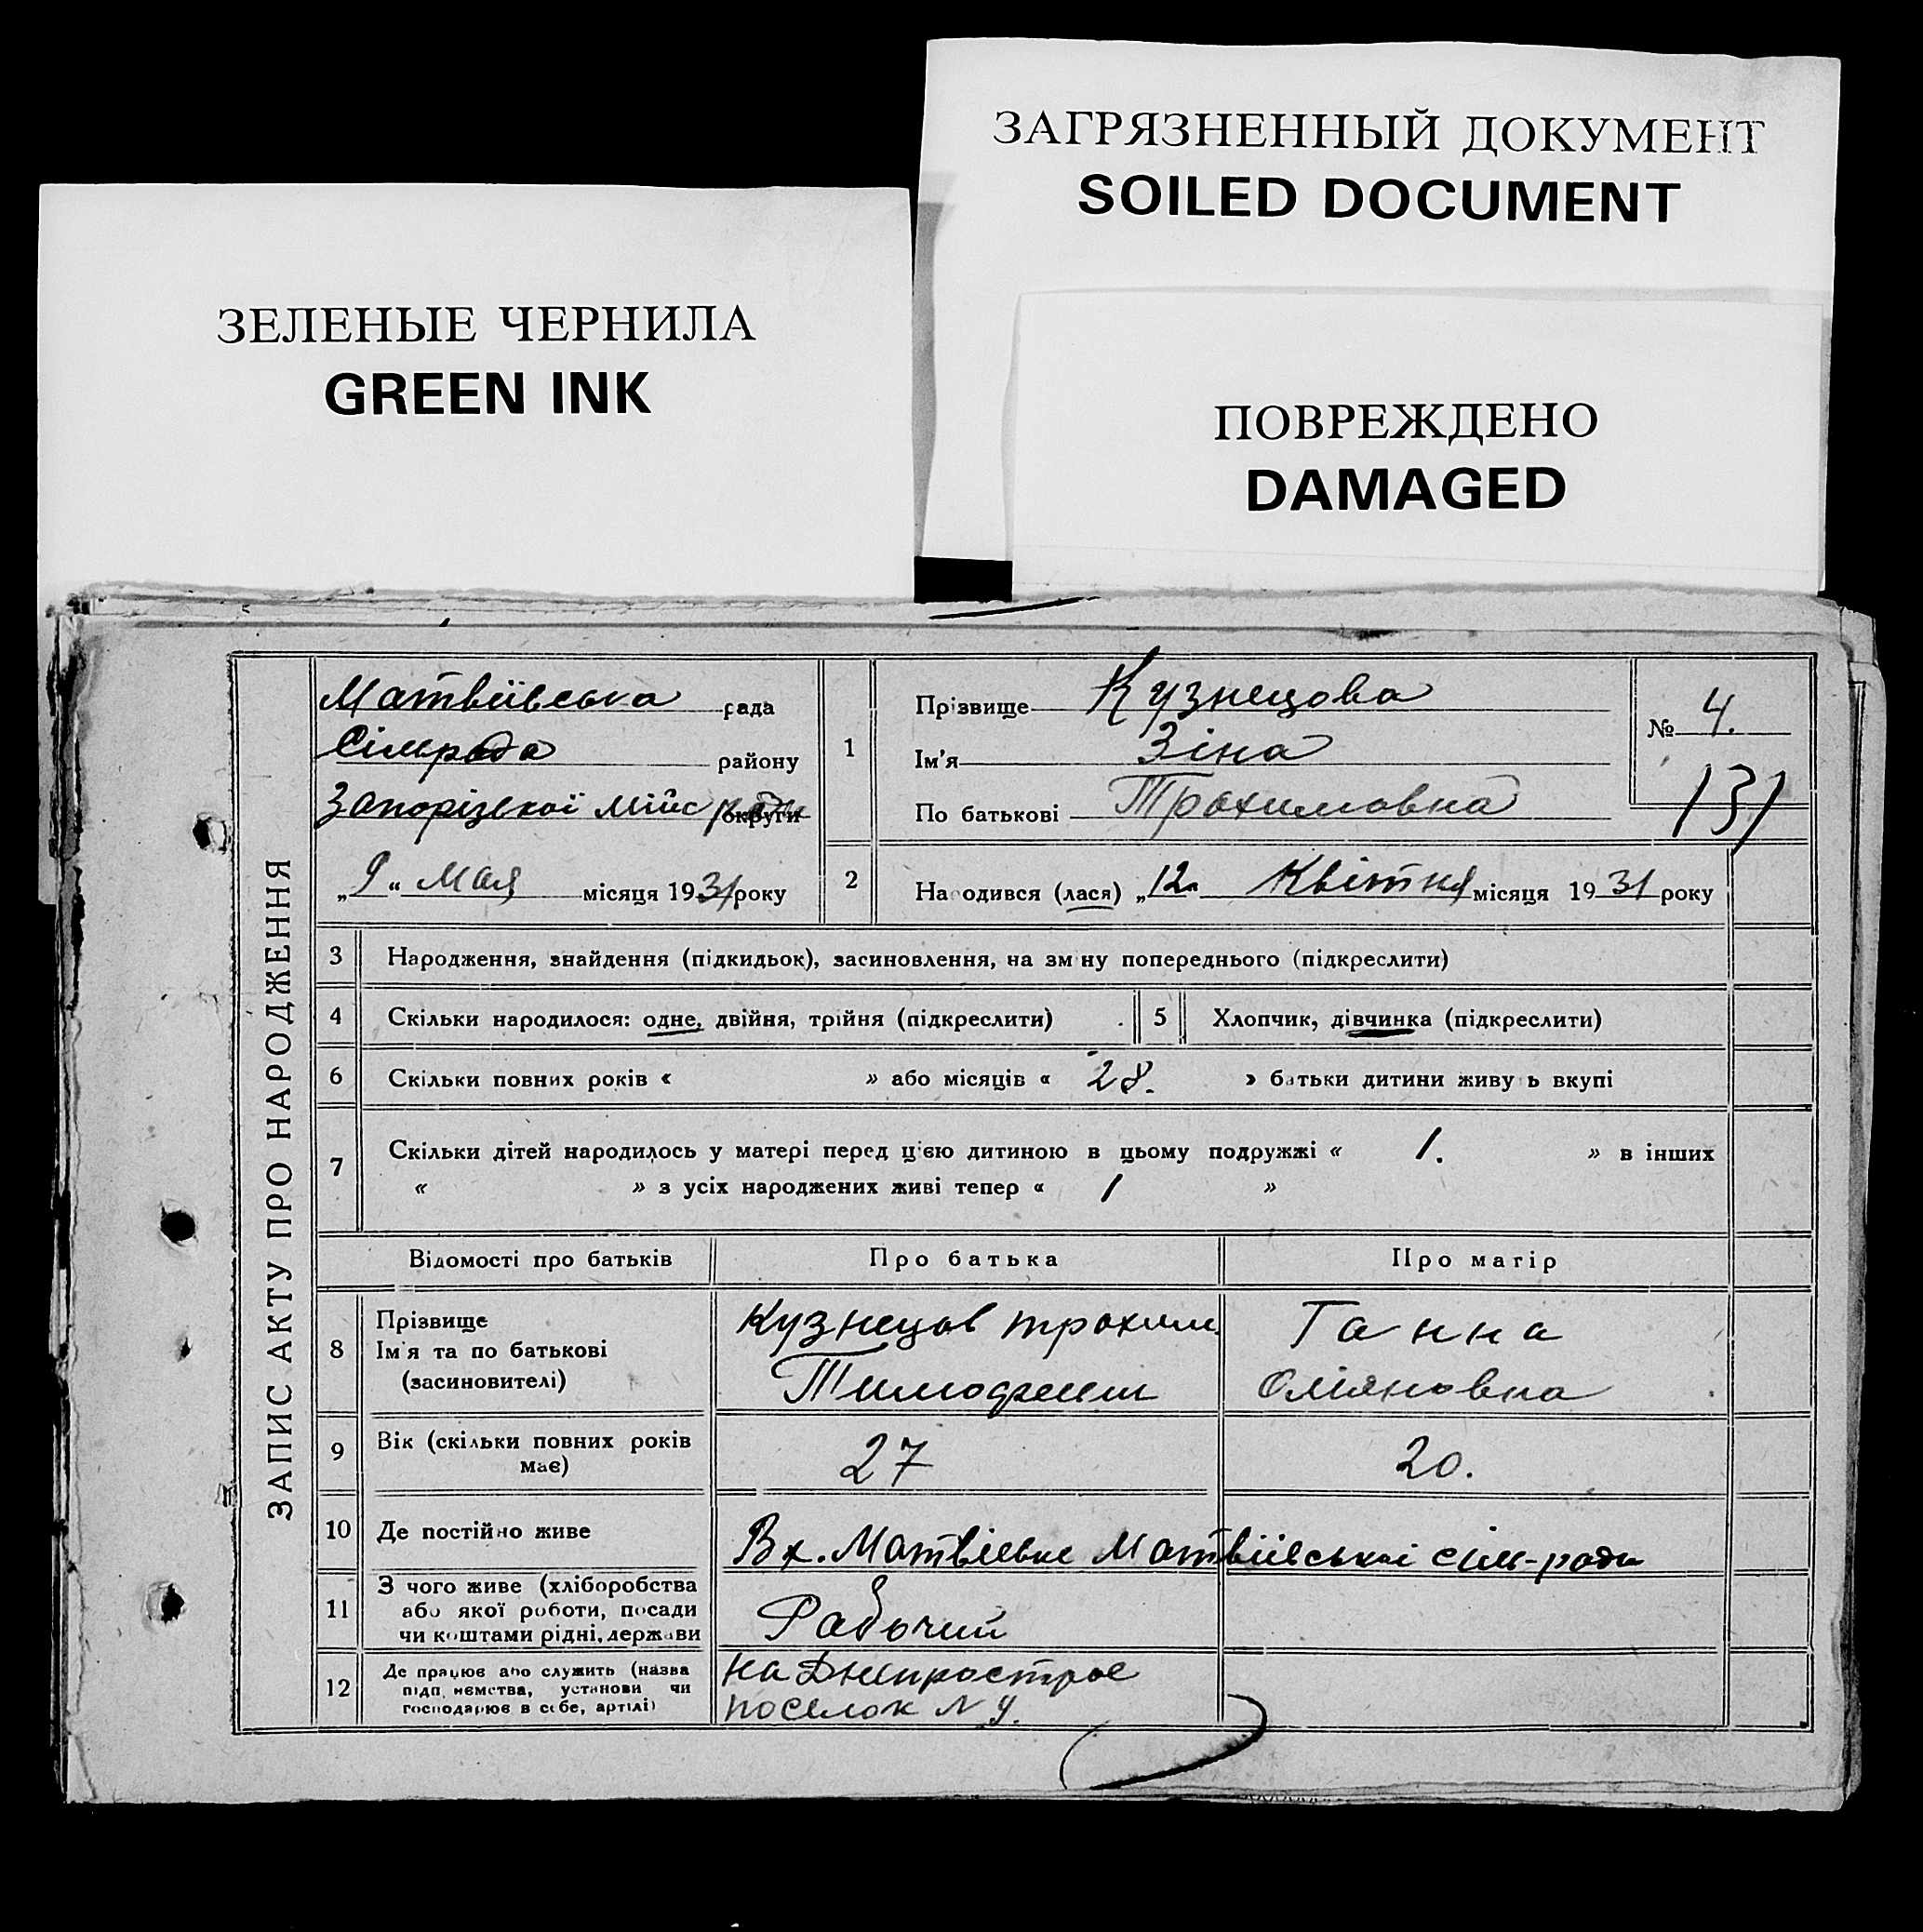 ЗАГРЯЗНЕННЫЙ ДОКУМЕНТ
SOILED DOCUMENT
ЗЕЛЕНЫЕ ЧЕРНИЛА
GREEN INK
ПОВРЕЖДЕНО
DAMAGED
ЗАПИС АКТУ ПРО НАРОДЖЕННЯ
Матвіївська рада
Сільрада району
Запорізької міськ ради округи
„9“ Мая місяця 1931 року
1
Прізвище Кузнецова
Ім'я Зіна
По батькові Трохимовна
№ 4.
131
2
Народився (лася) „12“ Квітня місяця 1931 року
3 Народження, знайдення (підкидьок), засиновлення, на зміну попереднього (підкреслити)
4 Скільки народилося: одне, двійня, трійня (підкреслити)
5 Хлопчик, дівчинка (підкреслити)
6 Скільки повних років « » або місяців « 28. » батьки дитини живуть вкупі
7 Скільки дітей народилось у матері перед цією дитиною в цьому подружжі « 1. » в інших
« » з усіх народжених живі тепер « 1 »
Відомості про батьків Про батька Про матір
8 Прізвище
Ім'я та по батькові
(засиновителі)
Кузнецов Трохим
Тимофеиш
Ганна
Оміяновна
9 Вік (скільки повних років
має)
27 20.
10 Де постійно живе
В х. Матвіевке Матвіївської сіль-ради
11 З чого живе (хліборобства
або якої роботи, посади
чи коштами рідні, держави
Рабочий
12 Де працює або служить (назва
підприємства, установи чи
господарює в себе, артілі)
На Днепрострое
поселок N у.